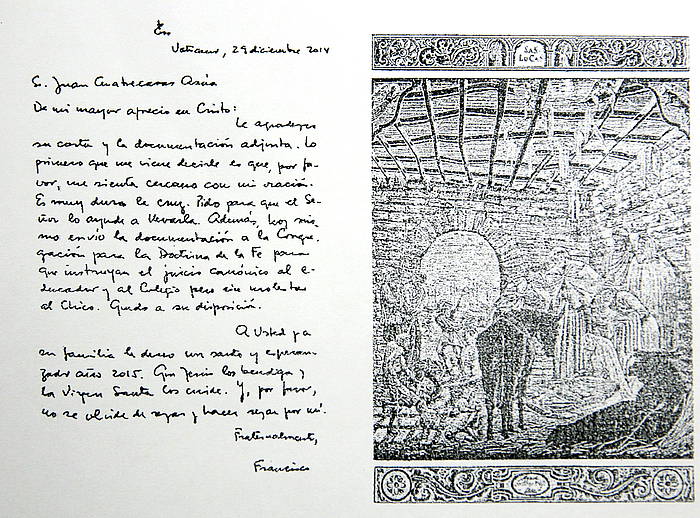 Vaticano, 29 diciembre 2014
Sr. Juan Cuatrecasas Asúa
De mi mayor aprecio en Cristo:
Le agradezco
su carta y la documentación adjunta. Lo
primero que me viene decirle es que, por fa-
vor, me sienta cercano con mi oración.
Es muy dura la cruz. Pido para que el Se-
ñor lo ayude a llevarla. Además, hoy mis-
mo envío la documentación a la Congre-
gación para la Doctrina de la Fe para
que instruyan el juicio canónico al e-
ducador y al Colegio pero sin molestar
al Chico. Quedo a su disposición.
A Usted y a
su familia le deseo un santo y esperan-
zador año 2015. Que Jesús los bendiga y
la Virgen Santa los cuide. Y, por favor,
no se olvide de rezar y hacer rezar por mí.
Fraternalmente,
Francisco
SAS
LUCAS